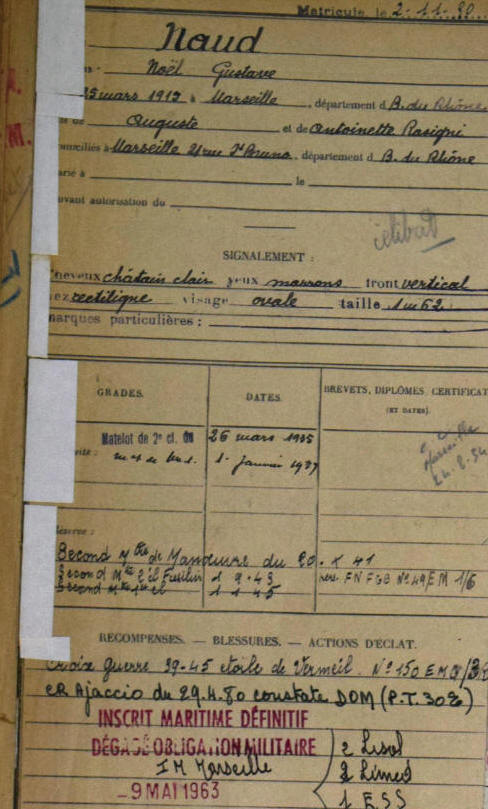 Matricule, le 2-11-80
Naud
Noël Gustave
25 mars 1913 à Marseille, département d B. du Rhône
Auguste et de Antoinette Rosigni
domiciliés à Marseille 21 rue St Bruno, département d B. du Rhône
arié à le
uvant autorisation du
célibat
SIGNALEMENT :
heveux châtain clair yeux marrons front vertical
ez rectiligne visage ovale taille 1m62
marques particulières :
GRADES. DATES. BREVETS, DIPLÔMES, CERTIFICAT
(ET DATES).
Matelot de 2e cl. 26 mars 1935
1 janvier 1937
Marseille
24.8.34
éserve :
Second Mtre de Manœuvre du 20. 41
Second Mtre Fusilier 1 9-43 FNFGB N°49/EM 1/6
Second Mtre 1 1 45
RECOMPENSES. — BLESSURES. — ACTIONS D'ECLAT.
Croix guerre 39-45 étoile de Vermeil. N°150 EMG/3
CR Ajaccio du 29.4.80 constate DOM (P.T. 30%)
INSCRIT MARITIME DÉFINITIF
DÉGAGÉ OBLIGATION MILITAIRE
IM Marseille
-9 MAI 1963
2
2
1 ESS